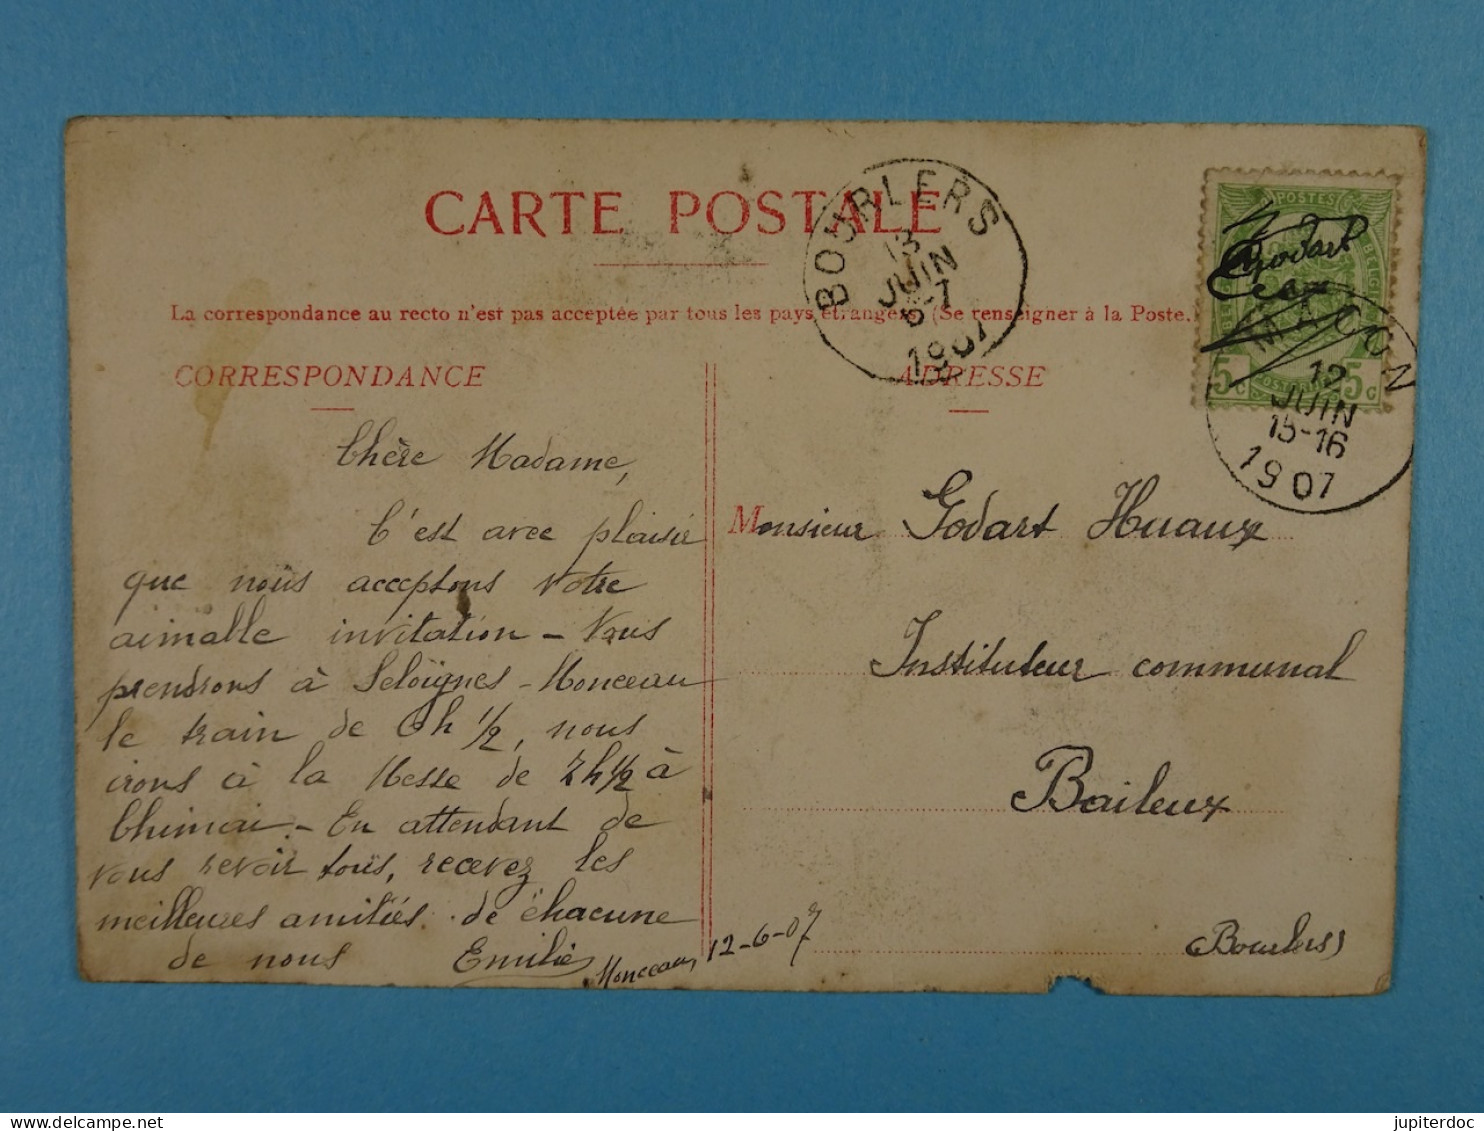 CARTE POSTALE
La correspondance au recto n'est pas acceptée par tous les pays étrangers (Se renseigner à la Poste.
CORRESPONDANCE
Chère Madame,
C'est avec plaisir
que nous acceptons votre
aimable invitation - Nous
prendrons à Seloignes-Monceau
le train de 6h 1/2, nous
irons à la Messe de 7h 1/2 à
Chimai. - En attendant de
vous revoir tous, recevez les
meilleures amitiés de chacune
de nous Emilie
Monceau, 12-6-07
ADRESSE
Monsieur Godart Huaux
Instituteur communal
Baileux
(Bourlers)
BOURLERS
13
JUIN
6-7
1907
POSTES
Godart
5c 5c
MACON
12
JUIN
15-16
1907
jupiterdoc